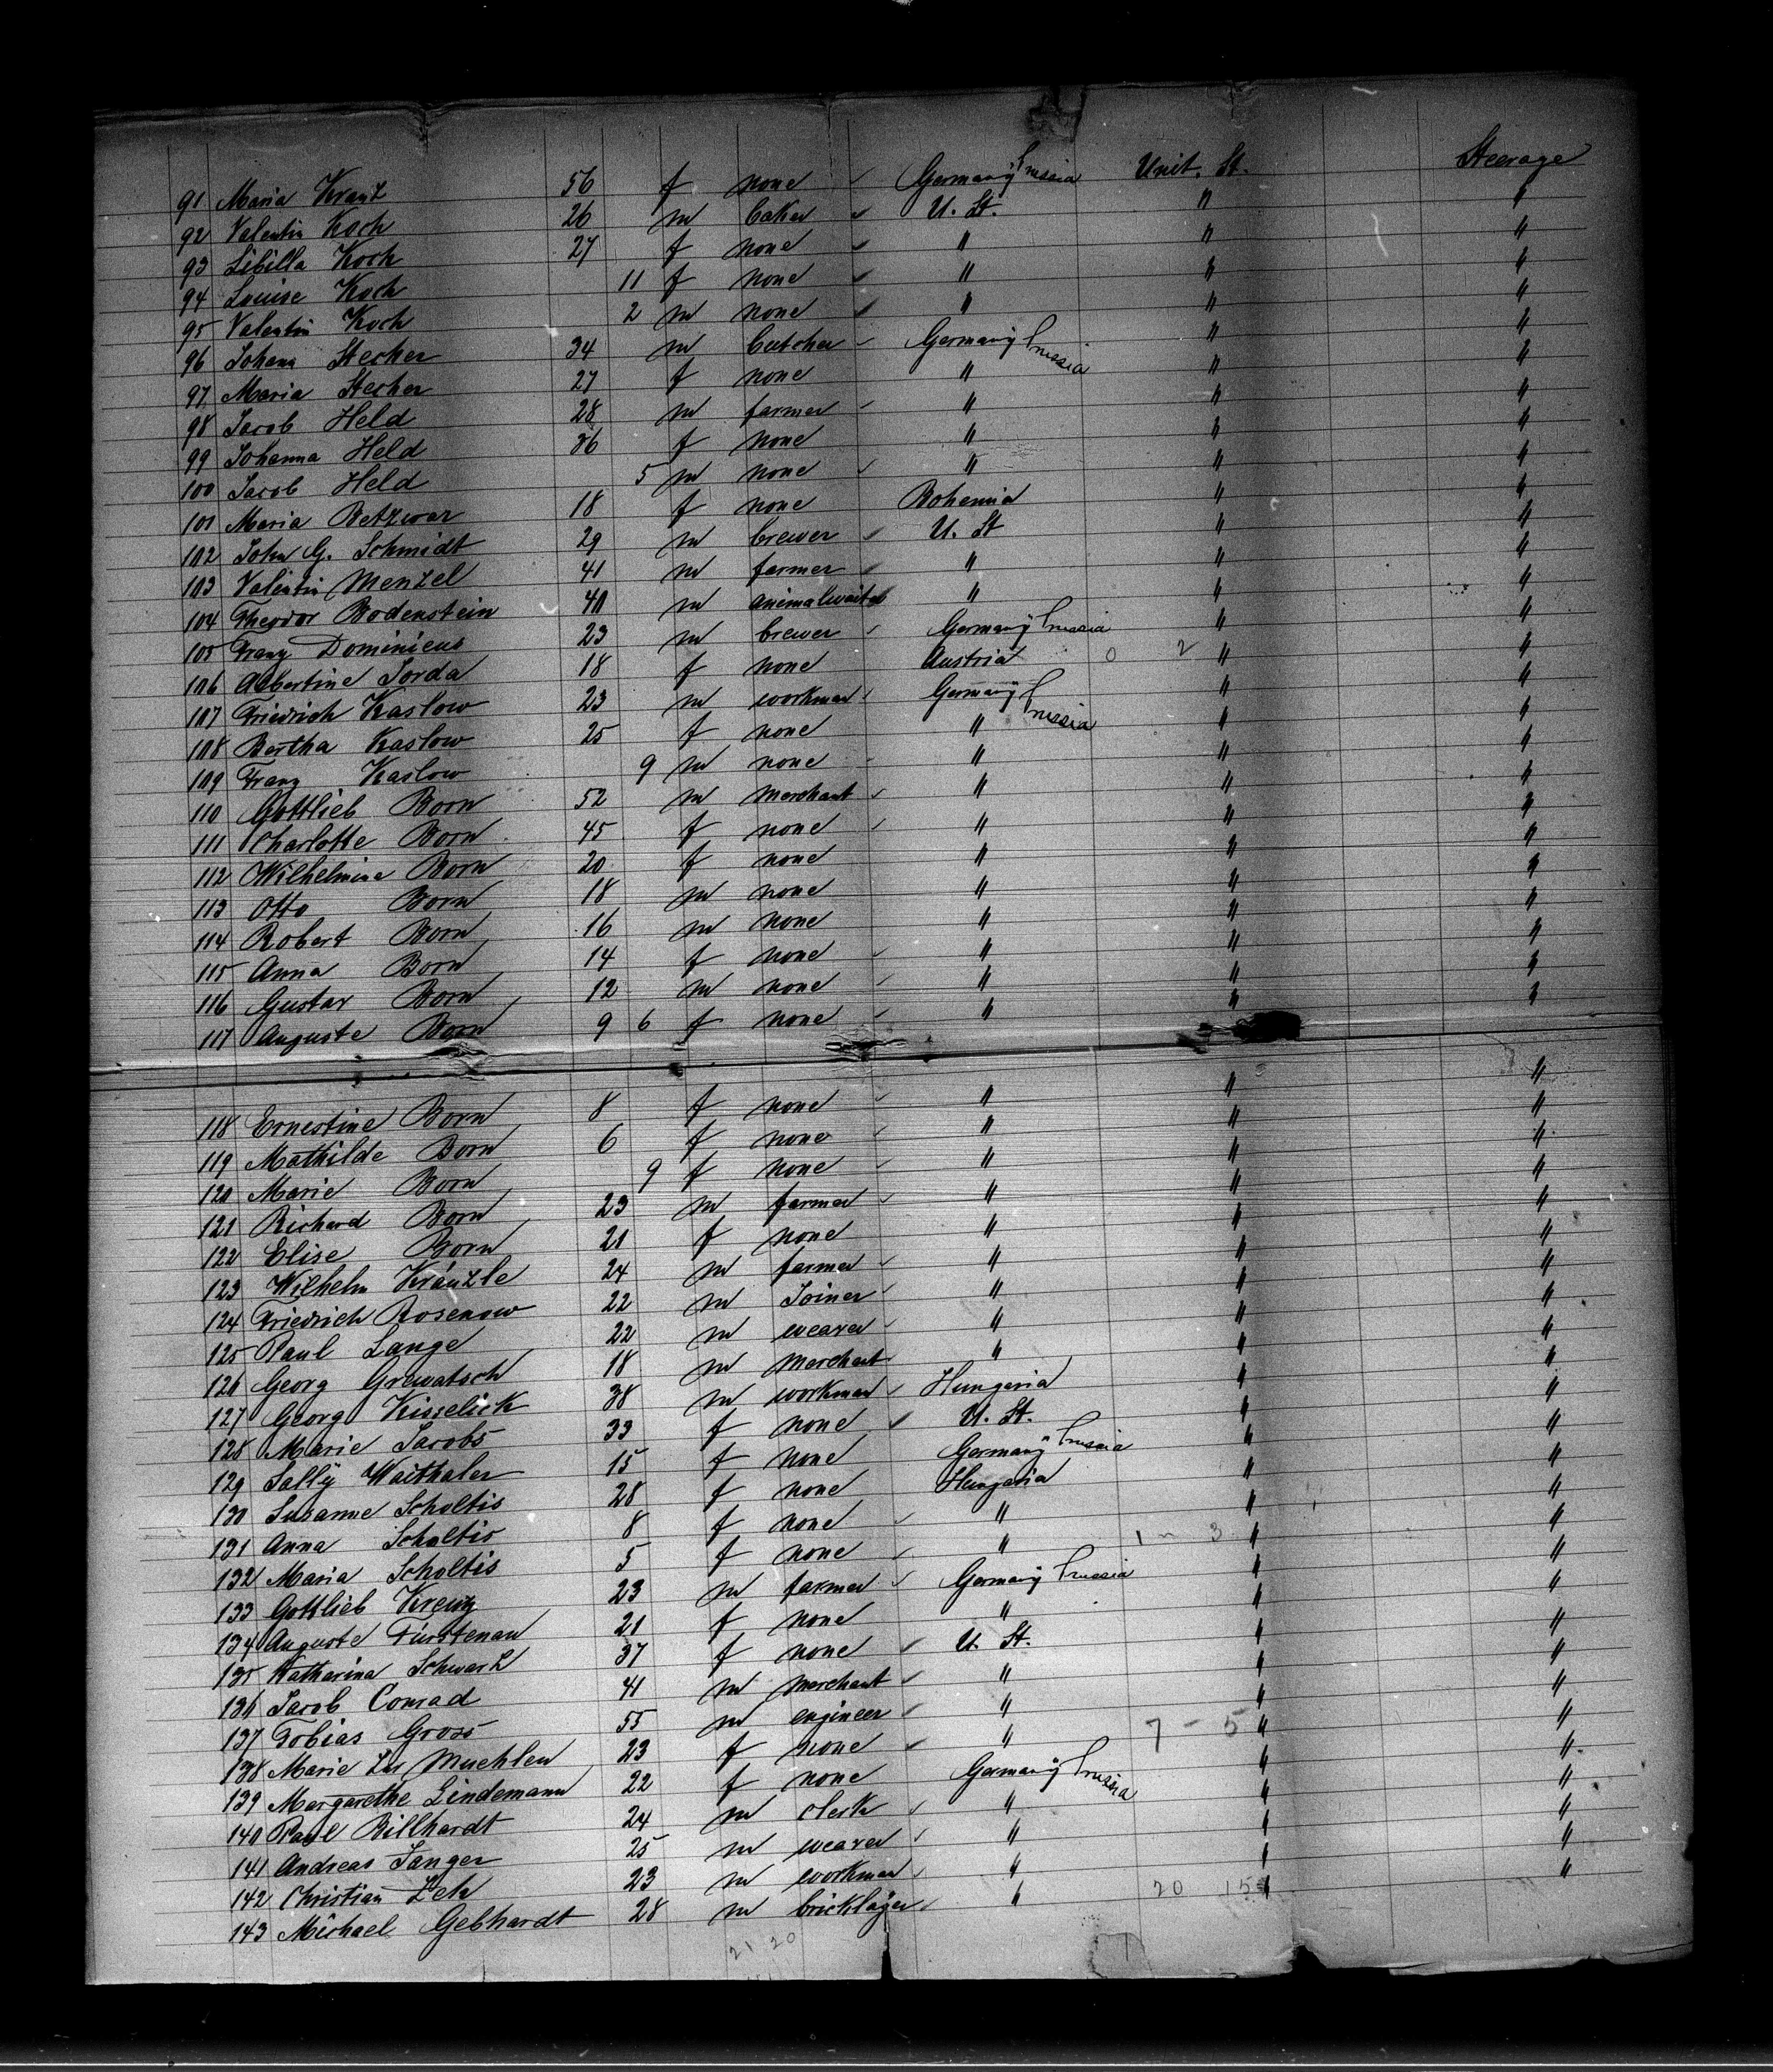 91 Maria Kranz 56 f none Germany Prussia Unit. St. Steerage
92 Valentin Koch 26 m baker U. St. " "
93 Sibilla Koch 27 f none " " "
94 Louise Koch 11 f none " " "
95 Valentin Koch 2 m none " " "
96 Johann Stecher 34 m butcher Germany Prussia " "
97 Maria Stecher 27 f none " " "
98 Jacob Held 28 m farmer " " "
99 Johanna Held 36 f none " " "
100 Jacob Held 5 m none " " "
101 Maria Betzwar 18 f none Bohemia " "
102 John G. Schmidt 29 m brewer U. St " "
103 Valentin Menzel 41 m farmer " " "
104 Theodor Bodenstein 40 m " " "
105 Franz Dominicus 23 m brewer Germany Prussia " "
106 Albertine Jorda 18 f none Austria 0 2 " "
107 Friedrich Kaslow 23 m workman Germany Prussia " "
108 Bertha Kaslow 25 f none " " "
109 Franz Kaslow 9 m none " " "
110 Gottlieb Born 52 m merchant " " "
111 Charlotte Born 45 f none " " "
112 Wilhelmine Born 20 f none " " "
113 Otto Born 18 m none " " "
114 Robert Born 16 m none " " "
115 Anna Born 14 f none " " "
116 Gustav Born 12 m none " " "
117 Auguste Born 9 6 f none " " "
118 Ernestine Born 8 f none " " "
119 Mathilde Born 6 f none " " "
120 Marie Born 9 f none " " "
121 Richard Born 23 m farmer " " "
122 Elise Born 21 f none " " "
123 Wilhelm Kränzle 24 m farmer " " "
124 Friedrich Rosenow 22 m Joiner " " "
125 Paul Lange 22 m weaver " " "
126 Georg Gruvatsch 18 m merchant " " "
127 Georg Kisselick 38 m workman Hungaria " "
128 Marie Jacobs 33 f none U. St. " "
129 Sally Waithaler 15 f none Germany Prussia " "
130 Susanne Scholtis 28 f none Hungaria " "
131 Anna Scholtis 8 f none " " "
132 Maria Scholtis 5 f none " 1 - 3 " "
133 Gottlieb Kreutz 23 m farmer Germany Prussia " "
134 Auguste Fürstenau 21 f none " " "
135 Katharina Schwarz 37 f none U. St. " "
136 Jacob Conrad 41 m merchant " " "
137 Tobias Gross 55 m engineer " " "
138 Marie Zur Muehlen 23 f none " 7 - 5 " "
139 Margarethe Lindemann 22 f none Germany Prussia " "
140 Paul Billhardt 24 m clerk " " "
141 Andreas Sanger 25 m weaver " " "
142 Christian Zeh 23 m workman " " "
143 Michael Gebhardt 28 m bricklayer " 20 15 "
21 20